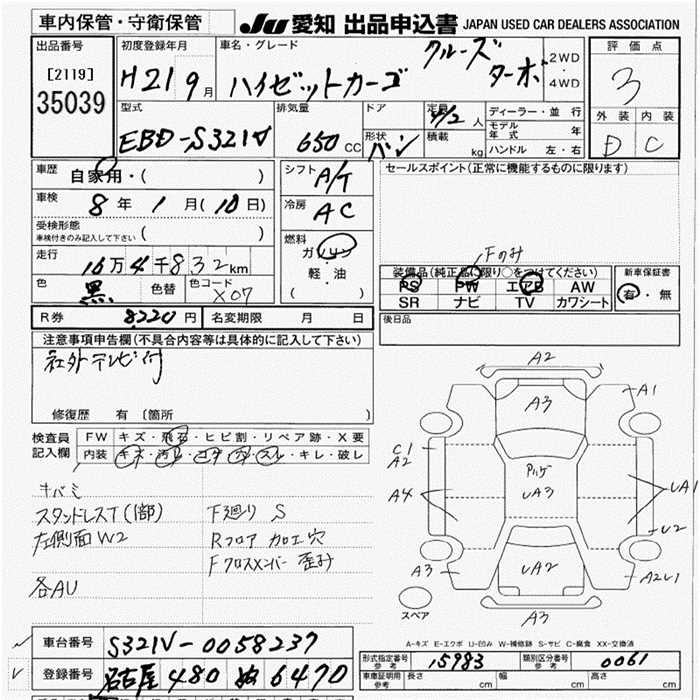 車内保管・守衛保管
JU 愛知 出品申込書 JAPAN USED CAR DEALERS ASSOCIATION
出品番号 [2119] 35039
初度登録年月 H21 9月
車名・グレード ハイゼットカーゴ クルーズターボ
2WD・4WD
評価点 3
外装 D 内装 C
型式 EBD-S321V
排気量 650 CC
ドア
形状 バン
定員 2 人
積載 kg
ディーラー・並行
モデル年式 年
ハンドル 左・右
車歴 自家用・( )
車検 8年 1月(10日)
受検形態 車検付きのみ記入して下さい ( )
走行 16万4千832km
色 黒 色替 色コード X07
シフト A/T
冷房 AC
燃料 ガソリン 軽・油 ( )
セールスポイント(正常に機能するものに限ります)
Fのみ
装備品(純正品に限り○をつけてください)
PS PW エアB AW
SR ナビ TV カワシート
新車保証書 有・無
R券 8220円 名変期限 月 日
後日品
注意事項申告欄(不具合内容等は具体的に記入して下さい)
社外テレビ付
修復歴 有 〔箇所 〕
検査員記入欄
FW キズ・飛石・ヒビ割・リペア跡・X要
内装 キズ・汚れ・コゲ・穴・スレ・キレ・破レ
キバミ
スタッドレスT(1部) F廻り S
左側面W2 Rフロア 加工穴
Fクロスメンバー 歪み
各AU
A2
A3
A1
C1
A2
A4
UA3
UA1
U2
A3
UA2
A2U1
A3
スペア
A-キズ E-エクボ U-凹み W-補修跡 S-サビ C-腐食 XX-交換済
車台番号 S321V-0058237
登録番号 名古屋 480 ぬ 6470
型式指定番号 参考 15983 類別区分番号 参考 0061
車庫証明用 参考 長さ cm 幅 cm 高さ cm